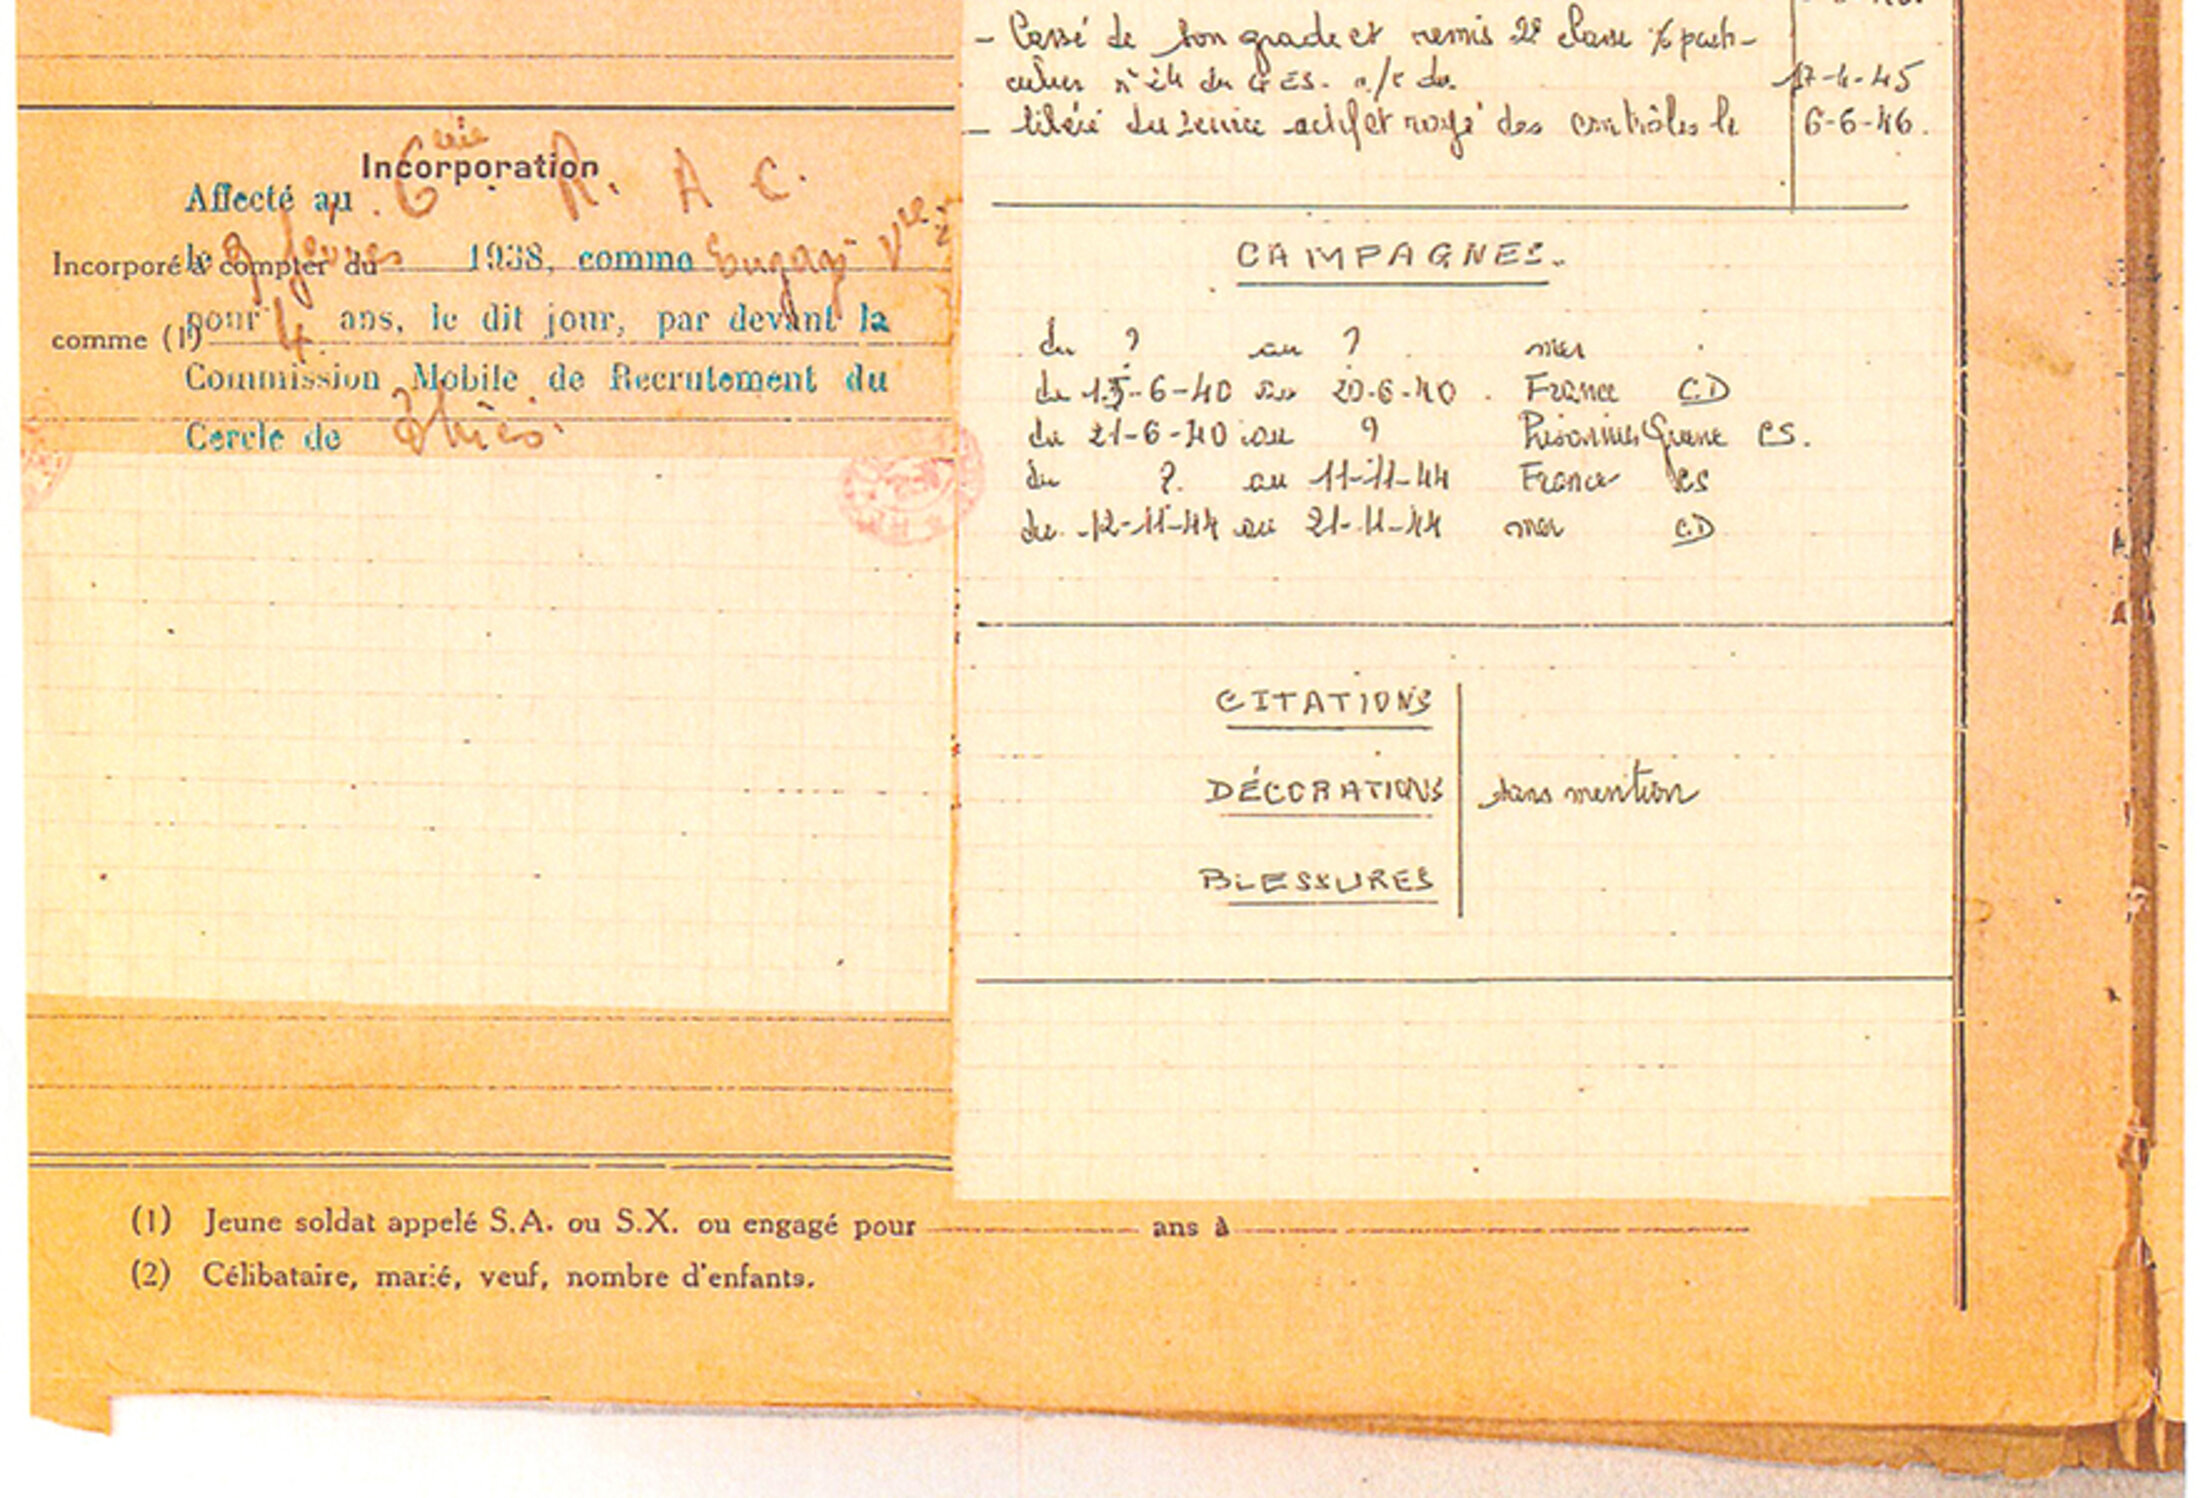 Incorporation
Affecté au 6 R. A C.
Incorporé à compter du
le 9 1938, comme Engagé Vre
comme (1)
pour 4 ans, le dit jour, par devant la
Commission Mobile de Recrutement du
Cercle de Thiès.
- Cassé de son grade et remis 2e classe
n° 24 du 17-4-45
- libéré du service actif et rayé des contrôles le 6-6-46.
CAMPAGNES.
du ? au ? mer
du 15-6-40 au 20-6-40 France CD
du 21-6-40 au ? Prisonnier Guerre CS.
du ? au 11-11-44 France CS
du 12-11-44 au 21-11-44 mer CD
CITATIONS
DÉCORATIONS sans mention
BLESSURES
(1) Jeune soldat appelé S.A. ou S.X. ou engagé pour ans à
(2) Célibataire, marié, veuf, nombre d'enfants.